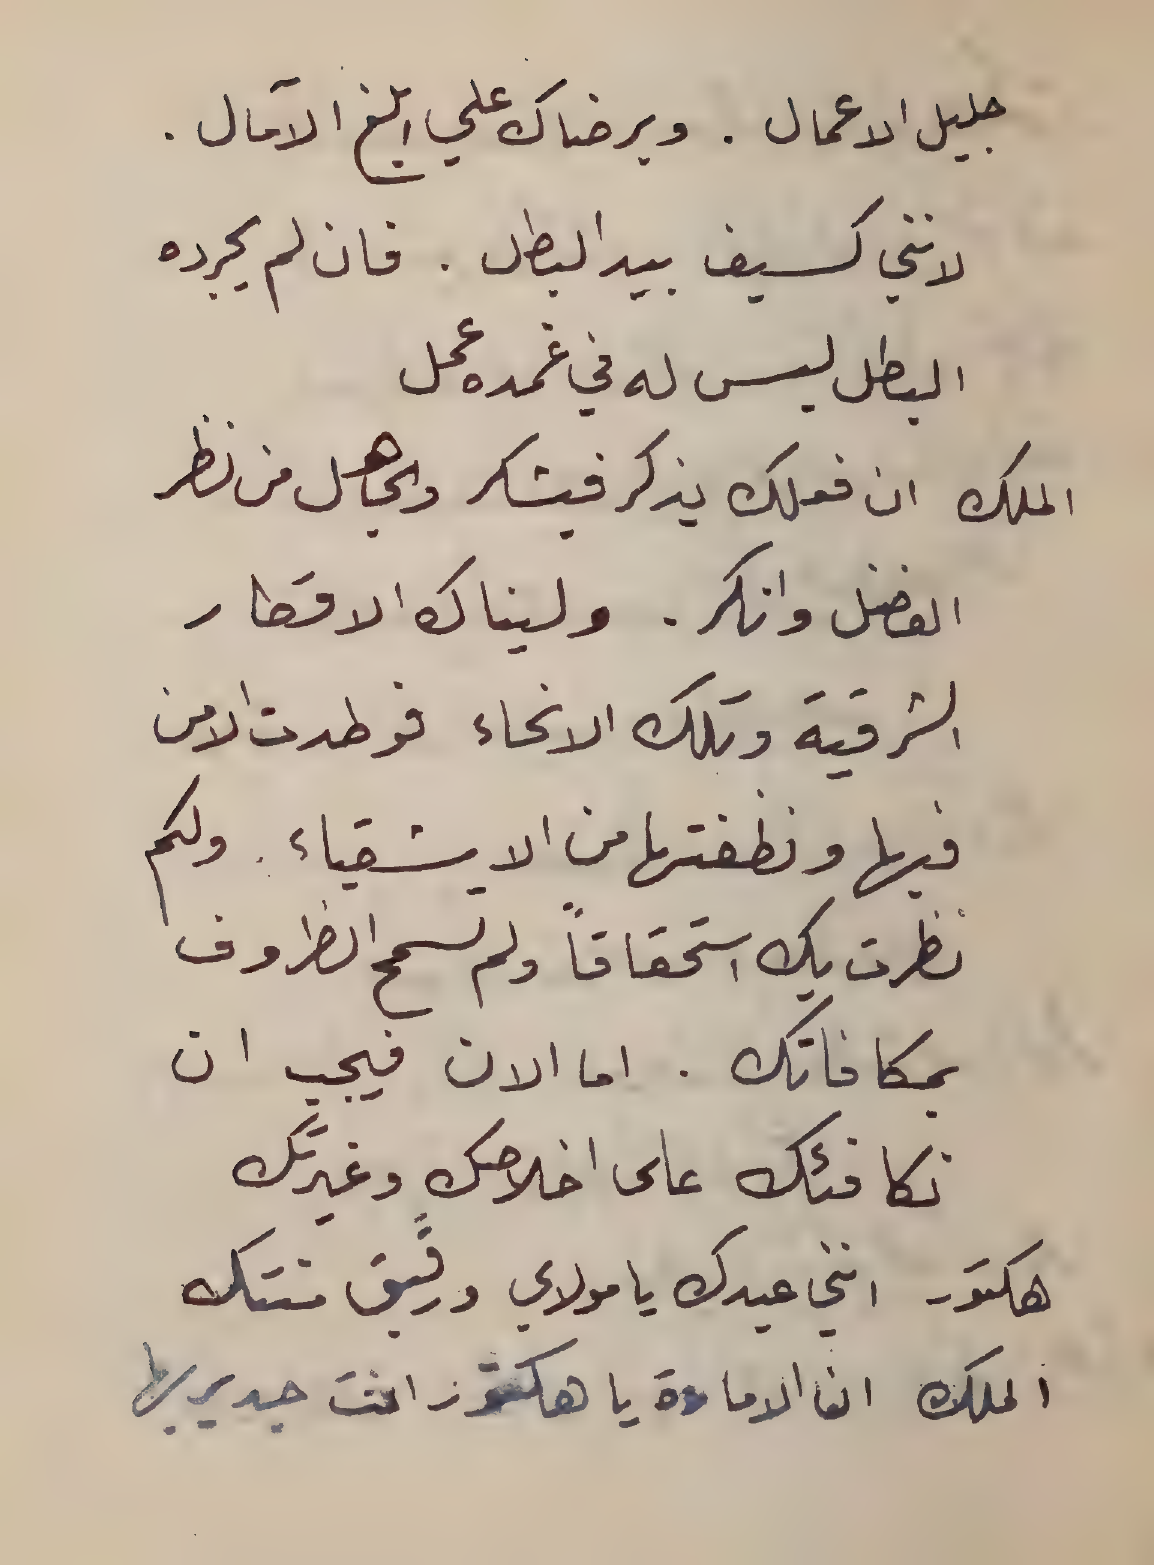 جليل الاعمال . وبرضاك علي ابلغ الآمال .
لانني كسيف بيد البطل . فان لم يجرده
البطل ليس له في غمده عمل
الملك ان فعلك يذكر فيشكر والجاهل من نظر
الفضل وانكر . ولیناك الاقطار
الشرقية وتلك الانحاء فوطدت الامن
فيها ونظفتها من الاشقياء . ولكم
نظرت بك استحقاقاً ولم تسمح الظروف
بمكافاتك . اما الان فيجب ان
نكافئك على اخلاصك وغيرتك
هكتور انني عبدك يا مولاي ورقيق منتك
الملك ان الامارة يا هكتور انت جدير بها